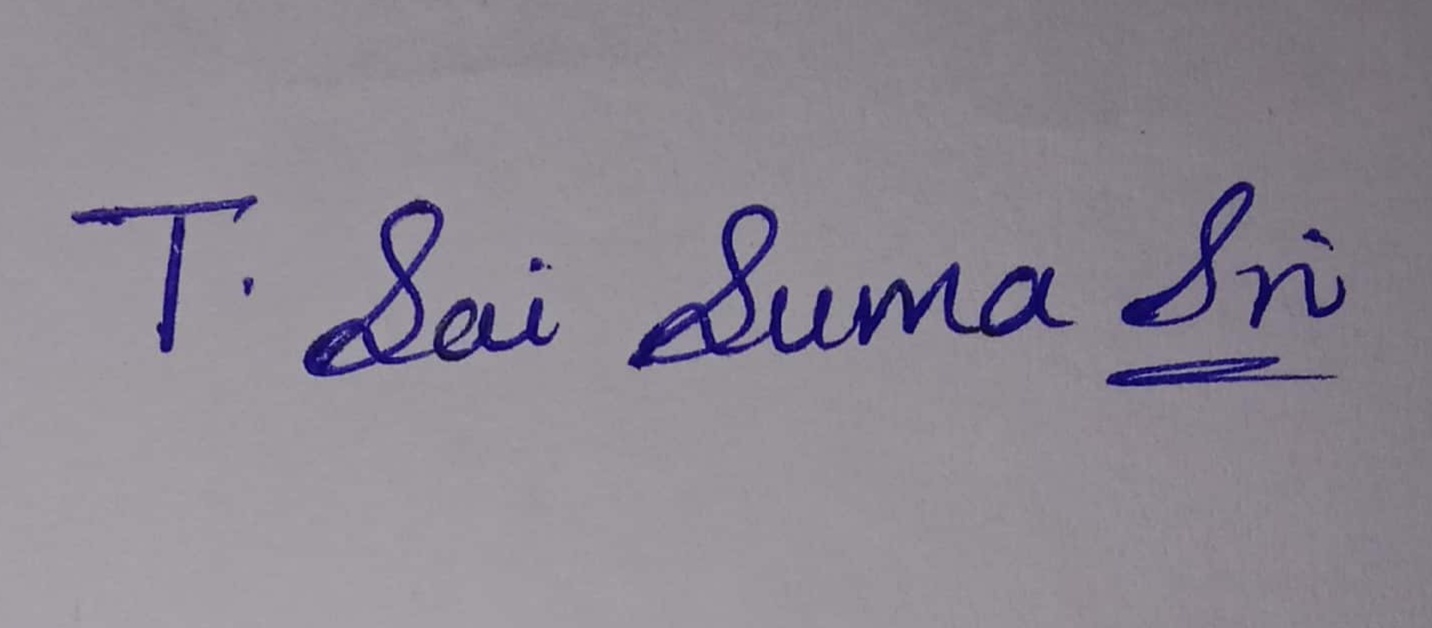 T. Sai Suma Sri